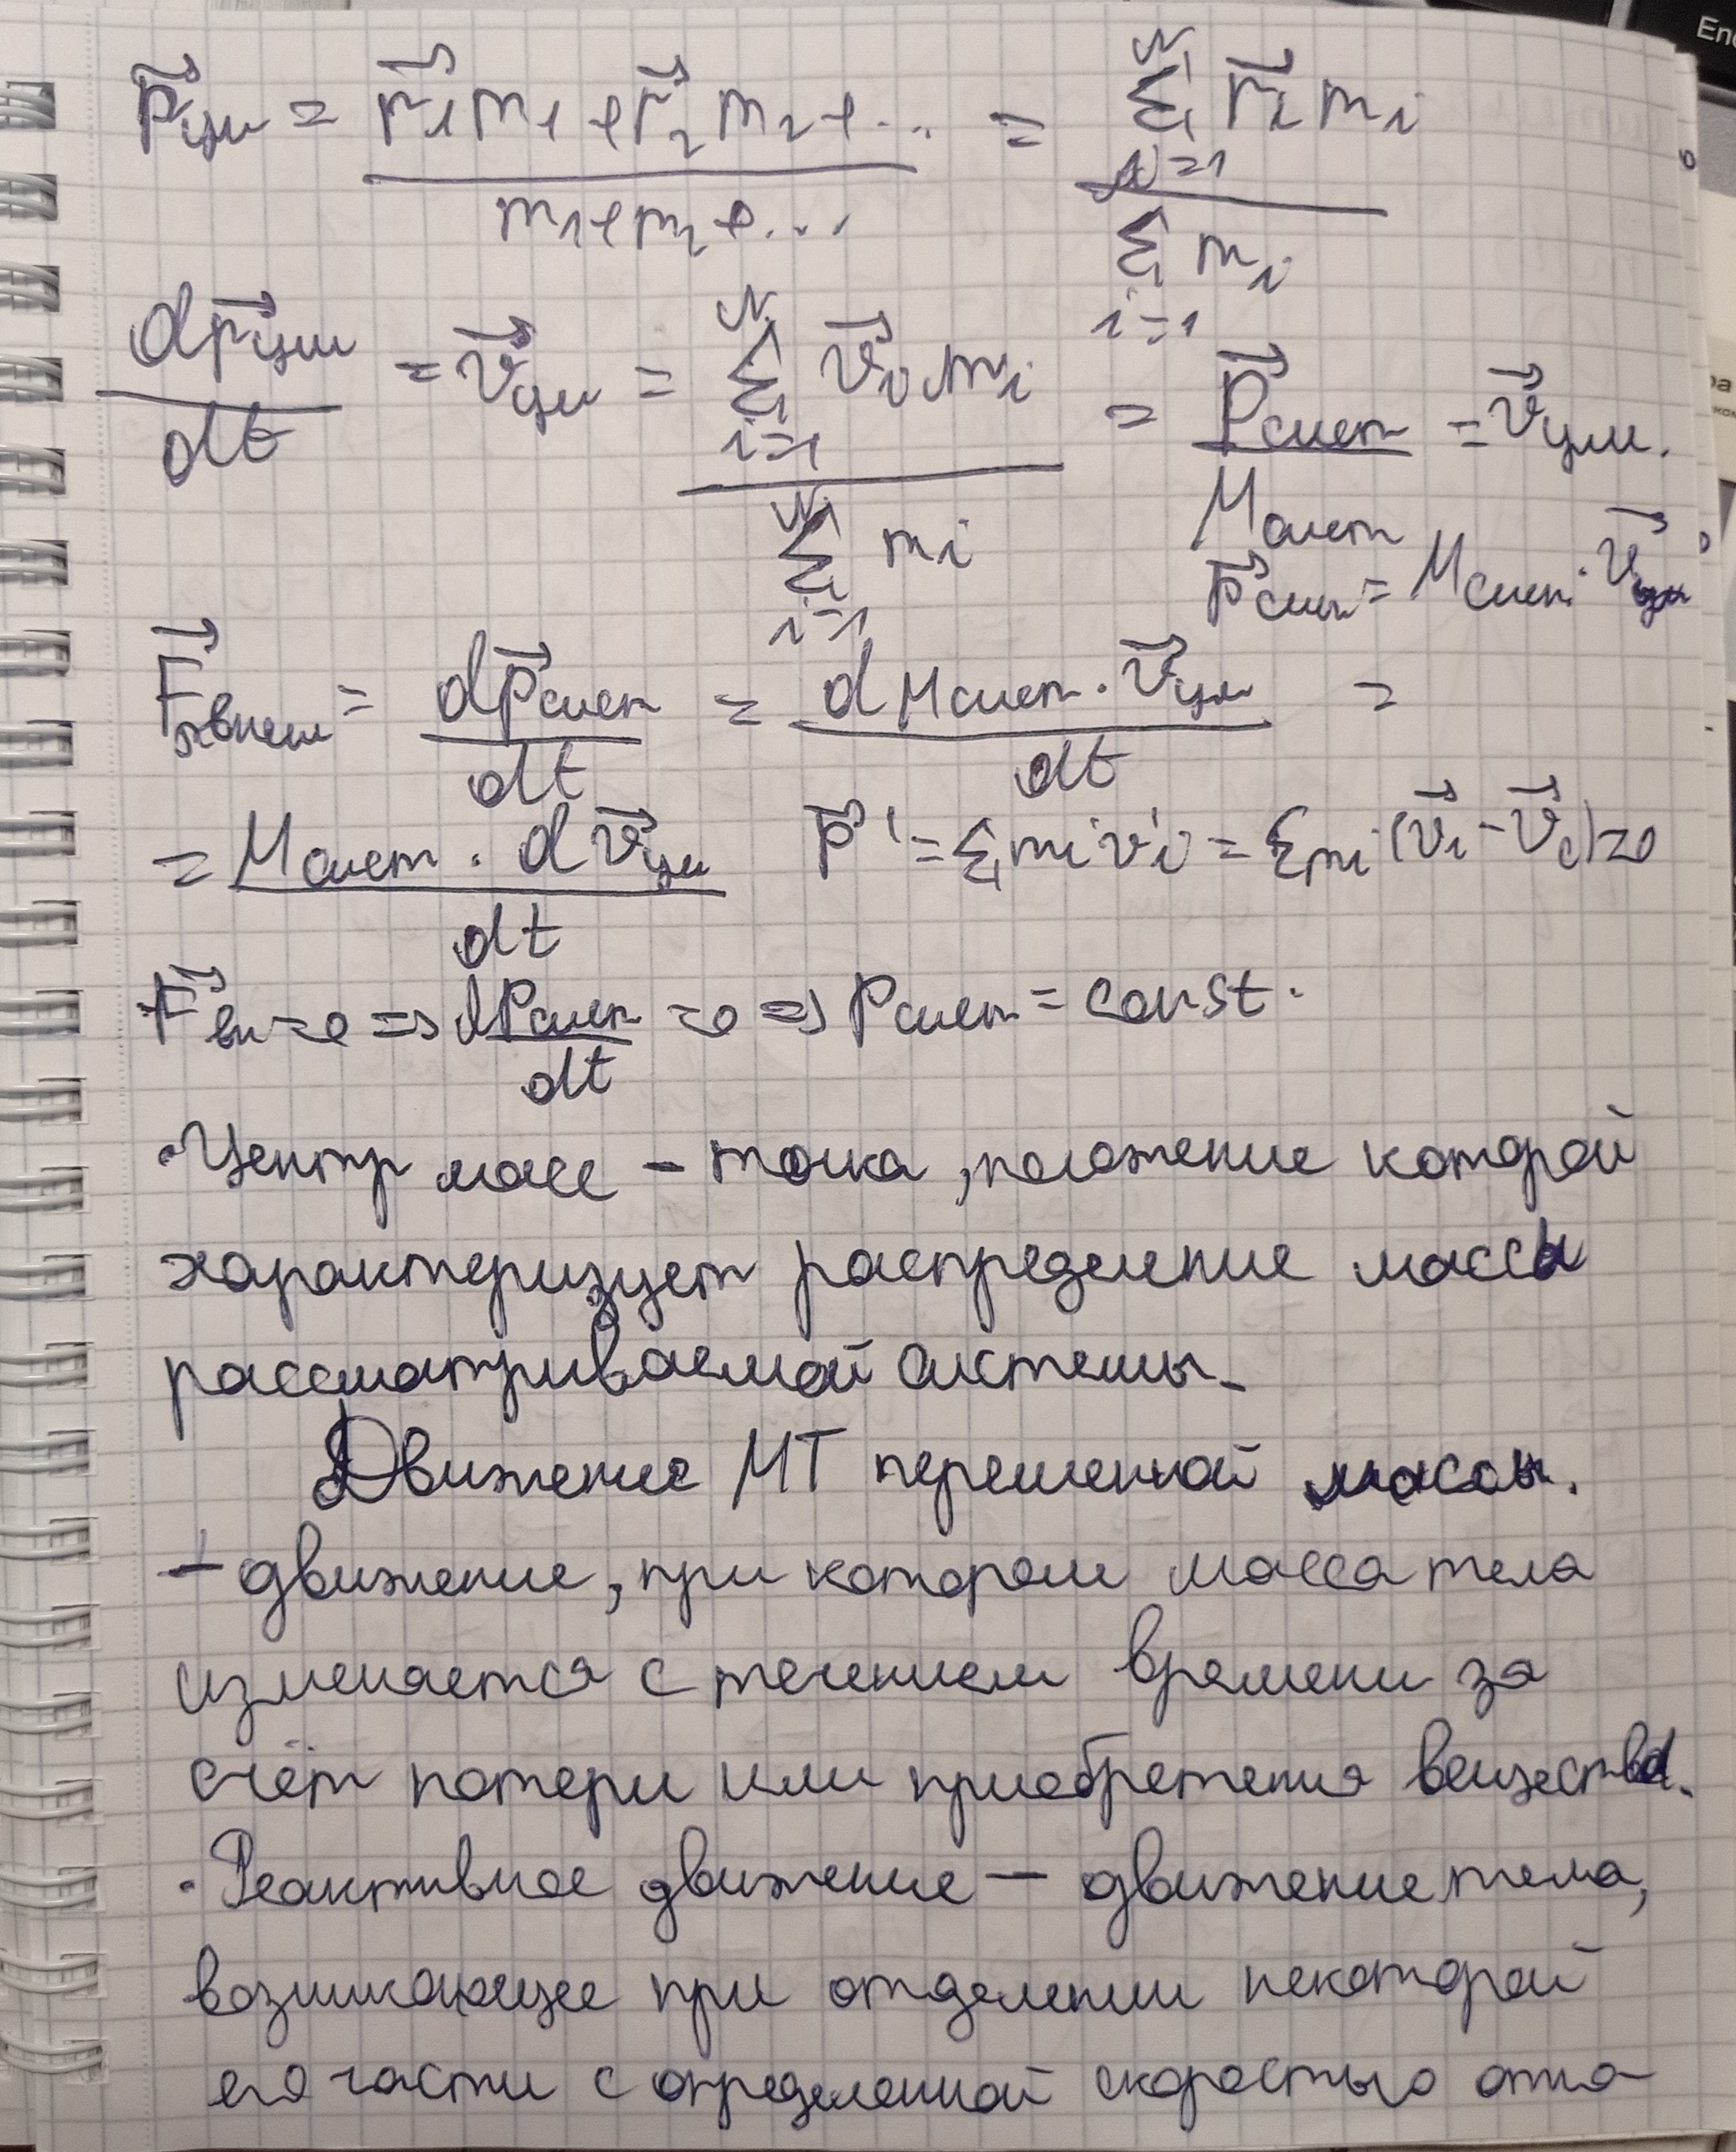 r⃗цм = (r⃗₁m₁ + r⃗₂m₂ + ...)/(m₁ + m₂ + ...) = (∑ᵢ₌₁ᴺ r⃗ᵢ mᵢ)/(∑ᵢ₌₁ mᵢ)
dr⃗цм/dt = v⃗цм = (∑ᵢ₌₁ᴺ v⃗ᵢ mᵢ)/(∑ᵢ₌₁ᴺ mᵢ) = P⃗сист/Mсист = v⃗цм.
p⃗сист = Mсист · v⃗цм
F⃗внеш = dp⃗сист/dt = dMсист · v⃗цм/dt =
= Mсист · dv⃗цм/dt p⃗' = ∑mᵢvᵢ' = ∑mᵢ(v⃗ᵢ - v⃗c) = 0
F⃗вн = 0 => dPсист/dt = 0 => Pсист = const.
• Центр масс – точка, положение которой
характеризует распределение массы
рассматриваемой системы.
Движение МТ переменной массы.
– движение, при котором масса тела
изменяется с течением времени за
счёт потери или приобретения вещества.
• Реактивное движение – движение тела,
возникающее при отделении некоторой
его части с определенной скоростью отно
End